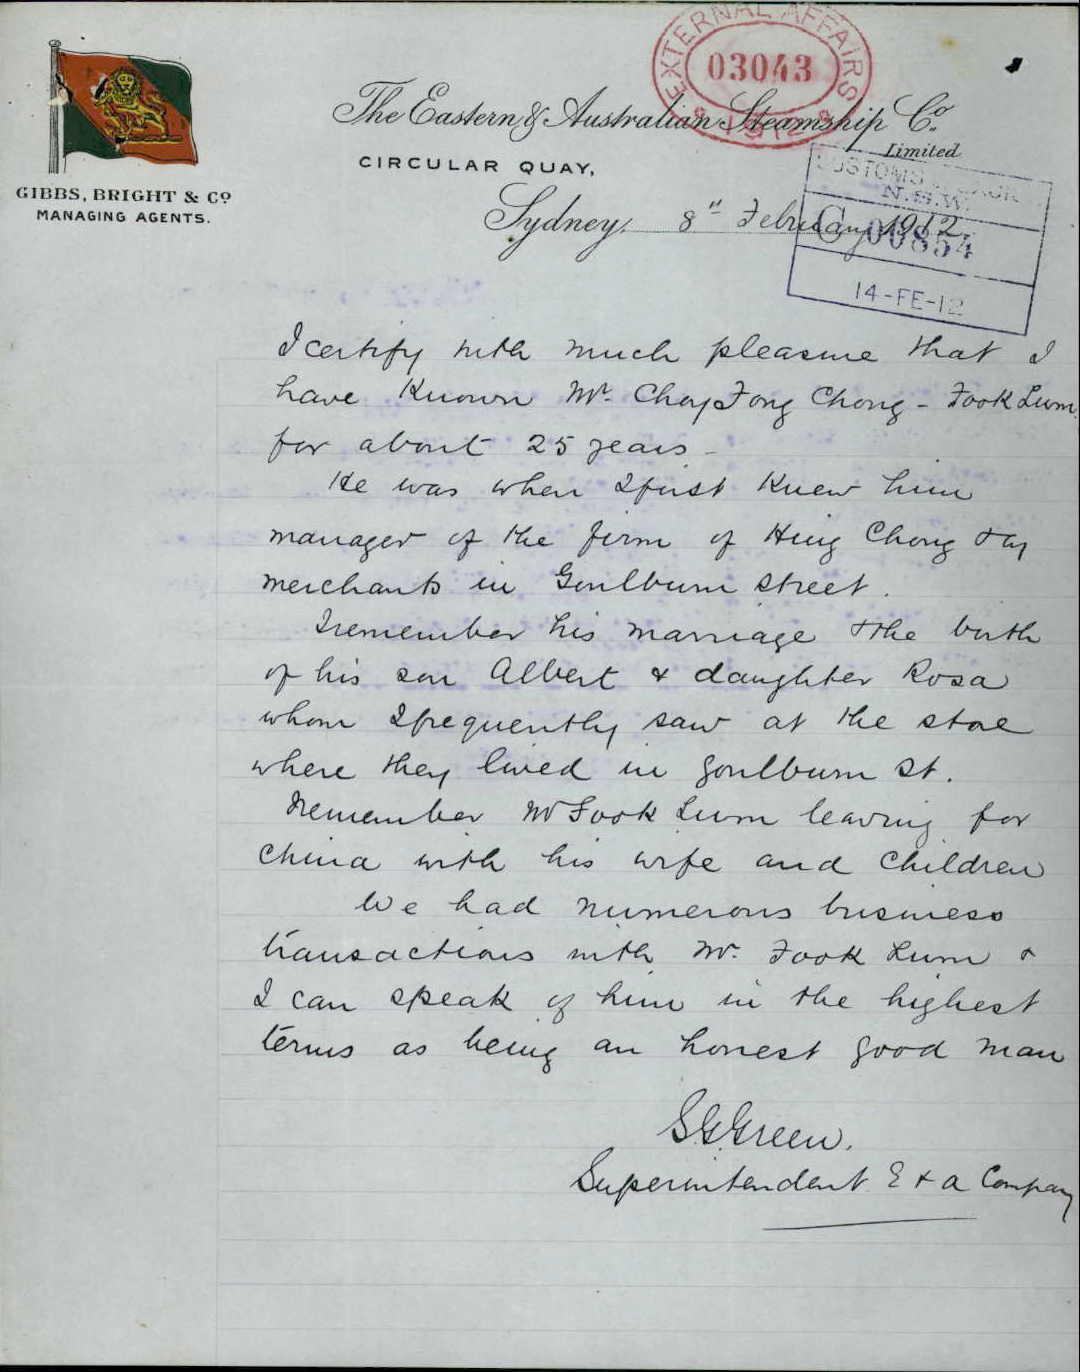 EXTERNAL AFFAIRS
03043
1912
The Eastern & Australian Steamship Co.
Limited
CIRCULAR QUAY,
GIBBS, BRIGHT & Co
MANAGING AGENTS.
CUSTOMS
N.S.W.
C 00854
14-FE-12
Sydney, 8" February 1912
I certify with much pleasure that I
have Known Mr. Choy Fong Chong - Fook Lum
for about 25 years -
He was when I first Knew him
manager of the firm of Hing Chong & Co
merchants in Goulburn street.
I remember his marriage & the birth
of his son Albert & daughter Rosa
whom I frequently saw at the store
where they lived in Goulburn St.
I remember Mr Fook Lum leaving for
China with his wife and Children
We had numerous business
transactions with Mr. Fook Lum &
I can speak of him in the highest
terms as being an honest good man
S.G. Green.
Superintendent E & A Company